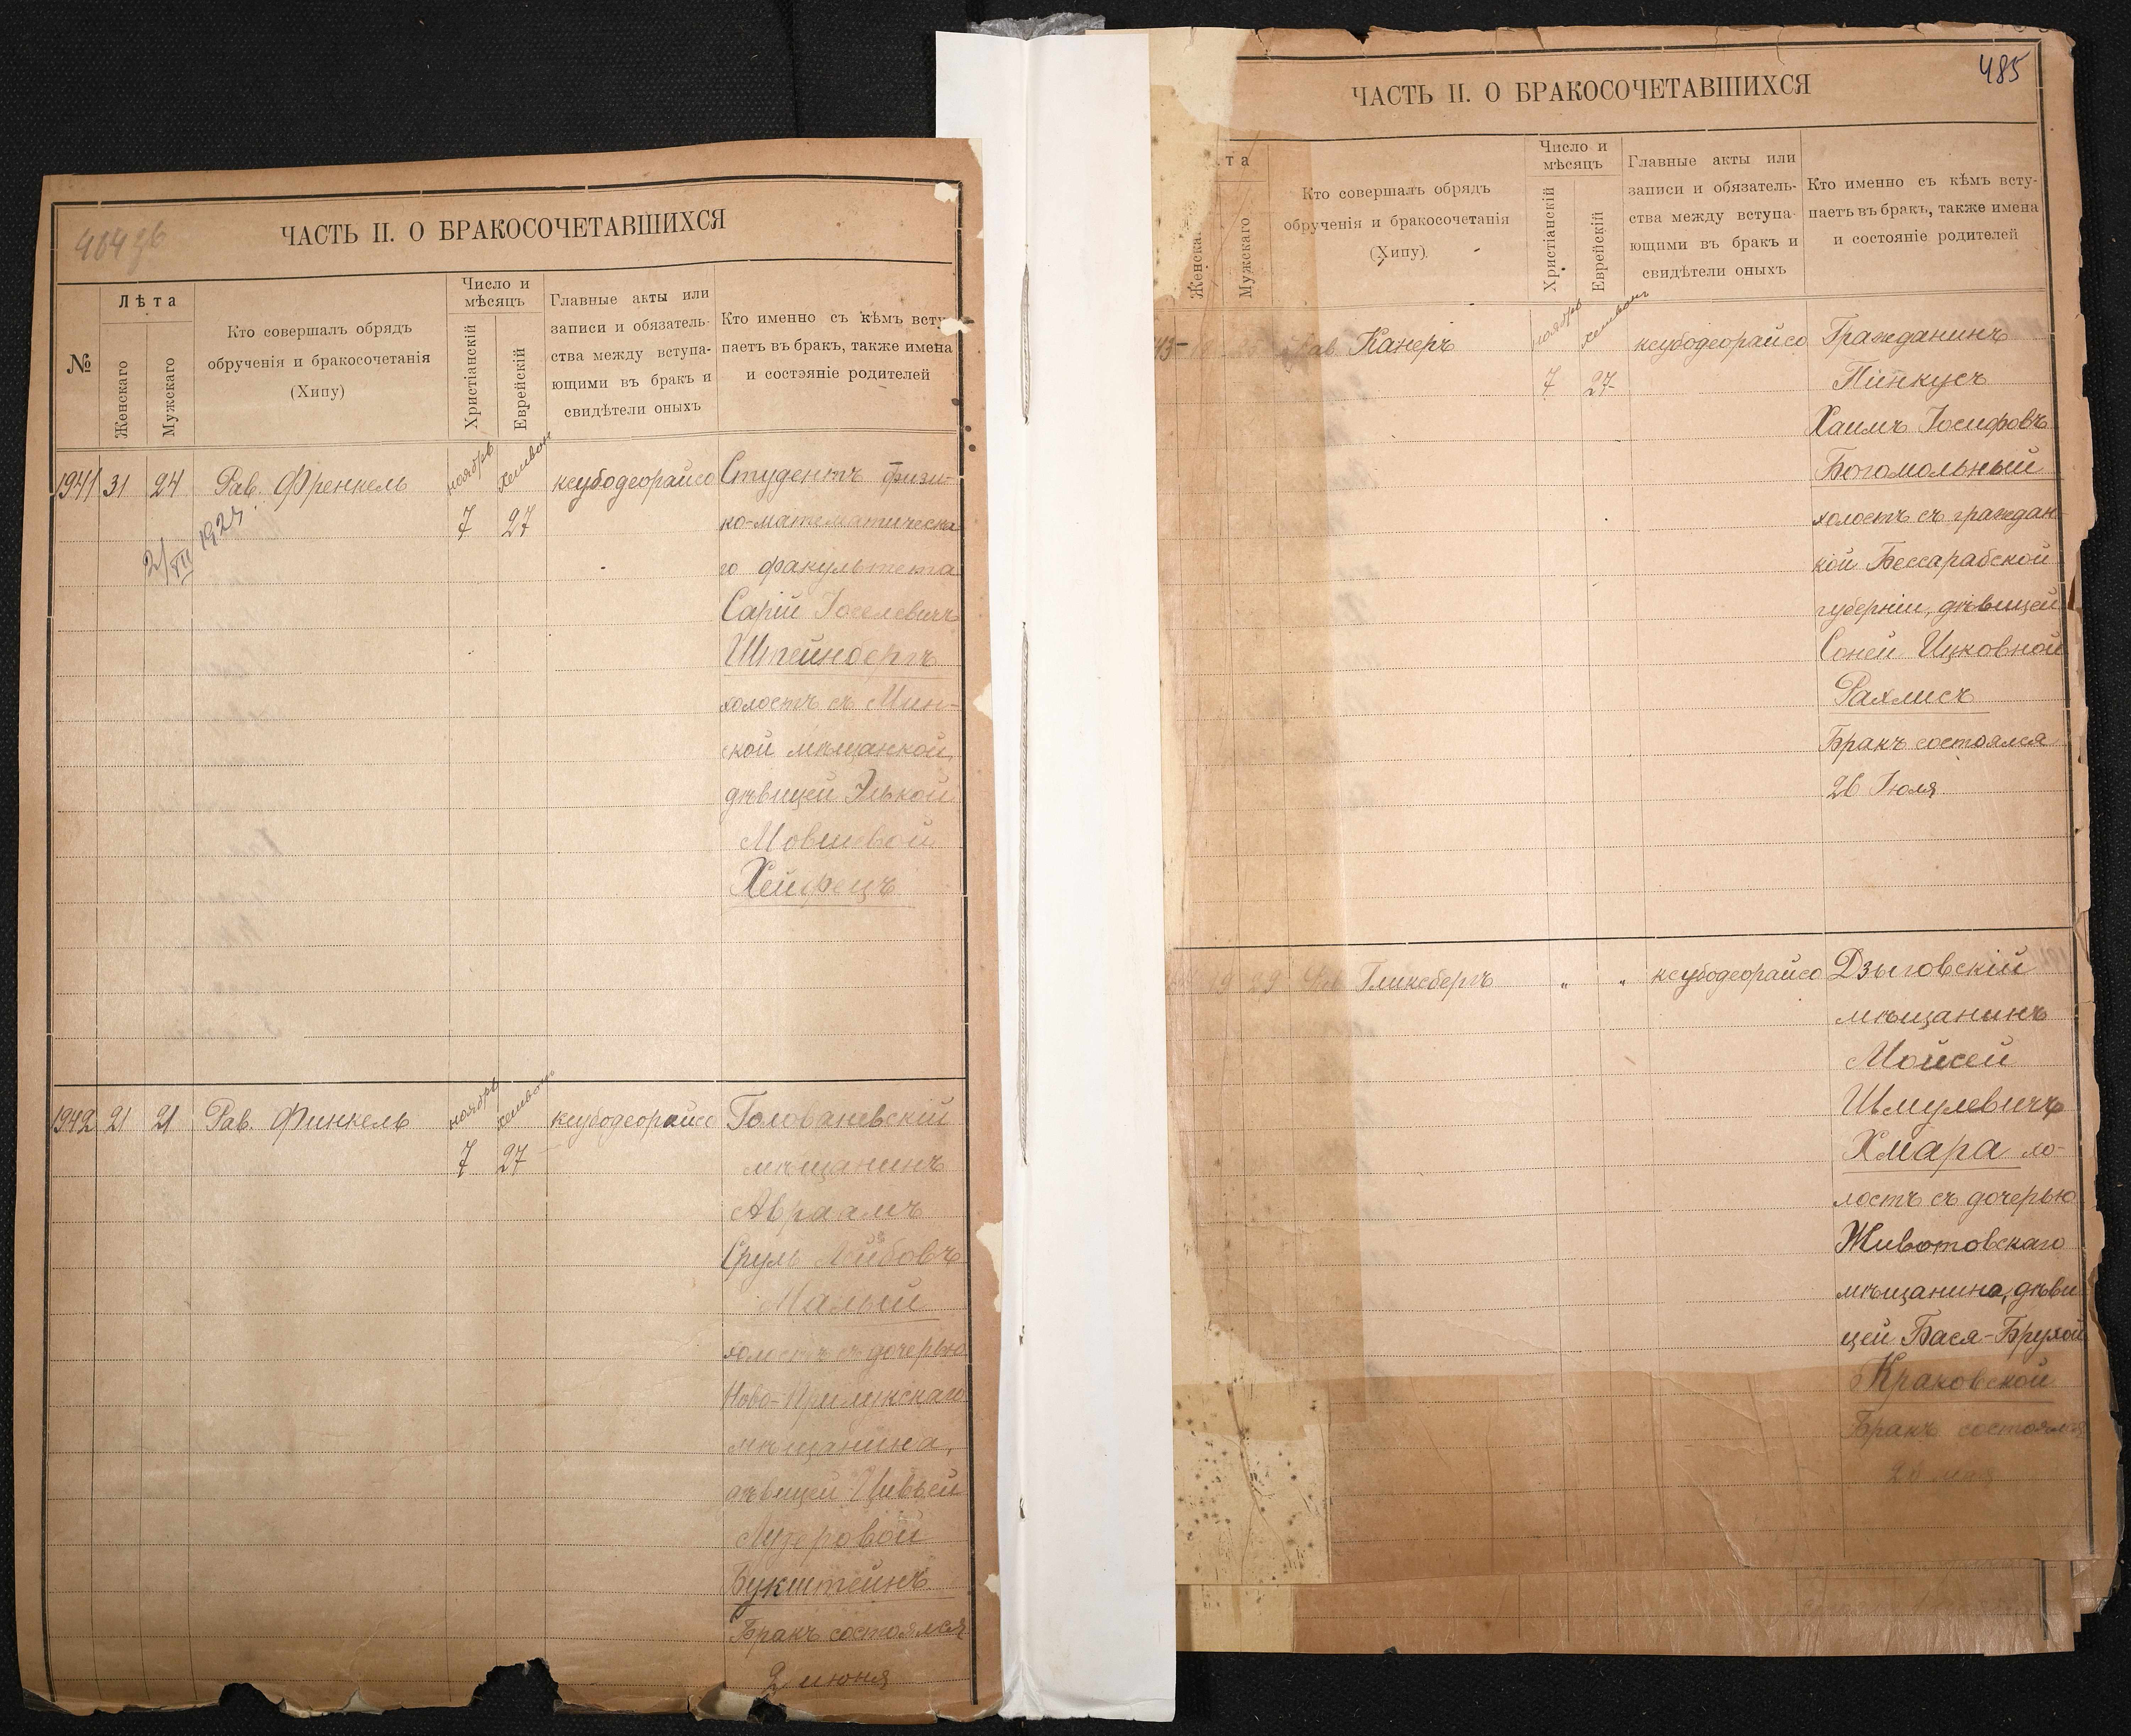 ЧАСТЬ II. О БРАКОСОЧЕТАВШИХСЯ
№
Лѣта
Женскаго
Мужескаго
Кто совершалъ обрядъ
обрученія и бракосочетанія
(Хипу)
Число и
мѣсяцъ
Христіанскій
Еврейскій
Главные акты или
записи и обязатель-
ства между вступа-
ющими въ бракъ и
свидѣтели оныхъ
Кто именно съ кѣмъ всту-
паетъ въ бракъ, также имена
и состояніе родителей
1941 31 24 Рав. Френкель ноябрь хешвон ксубодеорайсо Студентъ физи-
2/VII 1924. 7 27 ко-математическа
го факультета
Сарій Іоселевичъ
Штейнбергъ
холостъ съ Мин-
ской мѣщанкой,
дѣвицей Элькой
Мовшевой
Хейфецъ
1942 21 21 Рав. Финкель ноябрь хешвон ксубодеорайсо Голованевскій
7 27 мѣщанинъ
Авраамъ
Сруль Лейбовъ
Малый
холостъ съ дочерью
Ново-Прилукскаго
мѣщанина,
дѣвицей Цивьей
Лузеровой
Букштейнъ
Бракъ состоялся
2 июня
485
ЧАСТЬ II. О БРАКОСОЧЕТАВШИХСЯ
та
Женска
Мужскаго
Кто совершалъ обрядъ
обрученія и бракосочетанія
(Хипу)
Число и
мѣсяцъ
Христіанскій
Еврейскій
Главные акты или
записи и обязатель-
ства между вступа-
ющими въ бракъ и
свидѣтели оныхъ
Кто именно съ кѣмъ всту-
паетъ въ бракъ, также имена
и состояніе родителей
43 Рав. Канеръ ноябрь хешвон ксубодеорайсо Гражданинъ
7 27 Пинкусъ
Хаимъ Іосифовъ
Богомольный
холостъ съ граждан
кой Бессарабской
губерніи, дѣвицей
Соней Ицковной
Рахлисъ
Бракъ состоялся
26 Іюля
19 29 Рав Гликсбергъ „ „ ксубодеорайсо Дзыговскій
мѣщанинъ
Мойсей
Шмулевичъ
Хмара хо-
лостъ съ дочерью
Животовскаго
мѣщанина, дѣви
цей Бася-Брухой
Краковской
Бракъ состоялся